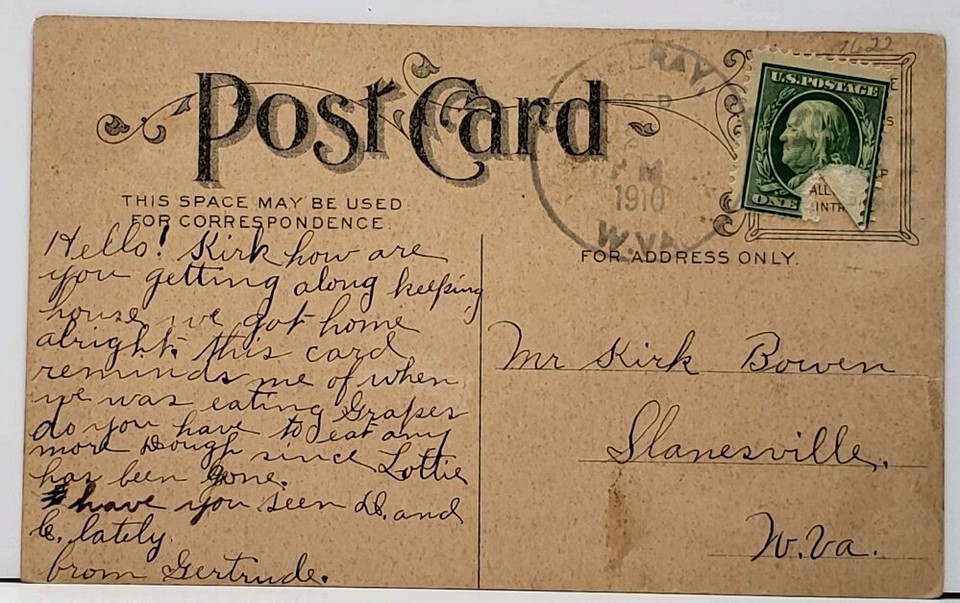 1622
Post Card
U.S. POSTAGE
ONE
ALL
INTR
SEP
PM
1910
W.VA.
THIS SPACE MAY BE USED
FOR CORRESPONDENCE.
FOR ADDRESS ONLY.
Hello! Kirk how are
you getting along keeping
house, we got home
alright. this card
reminds me of when
we was eating Grapes
do you have to eat any
more Dough since Lottie
has been gone.
have you seen D. and
C. lately.
from Gertrude.
Mr Kirk Bowen
Slanesville.
W.Va.